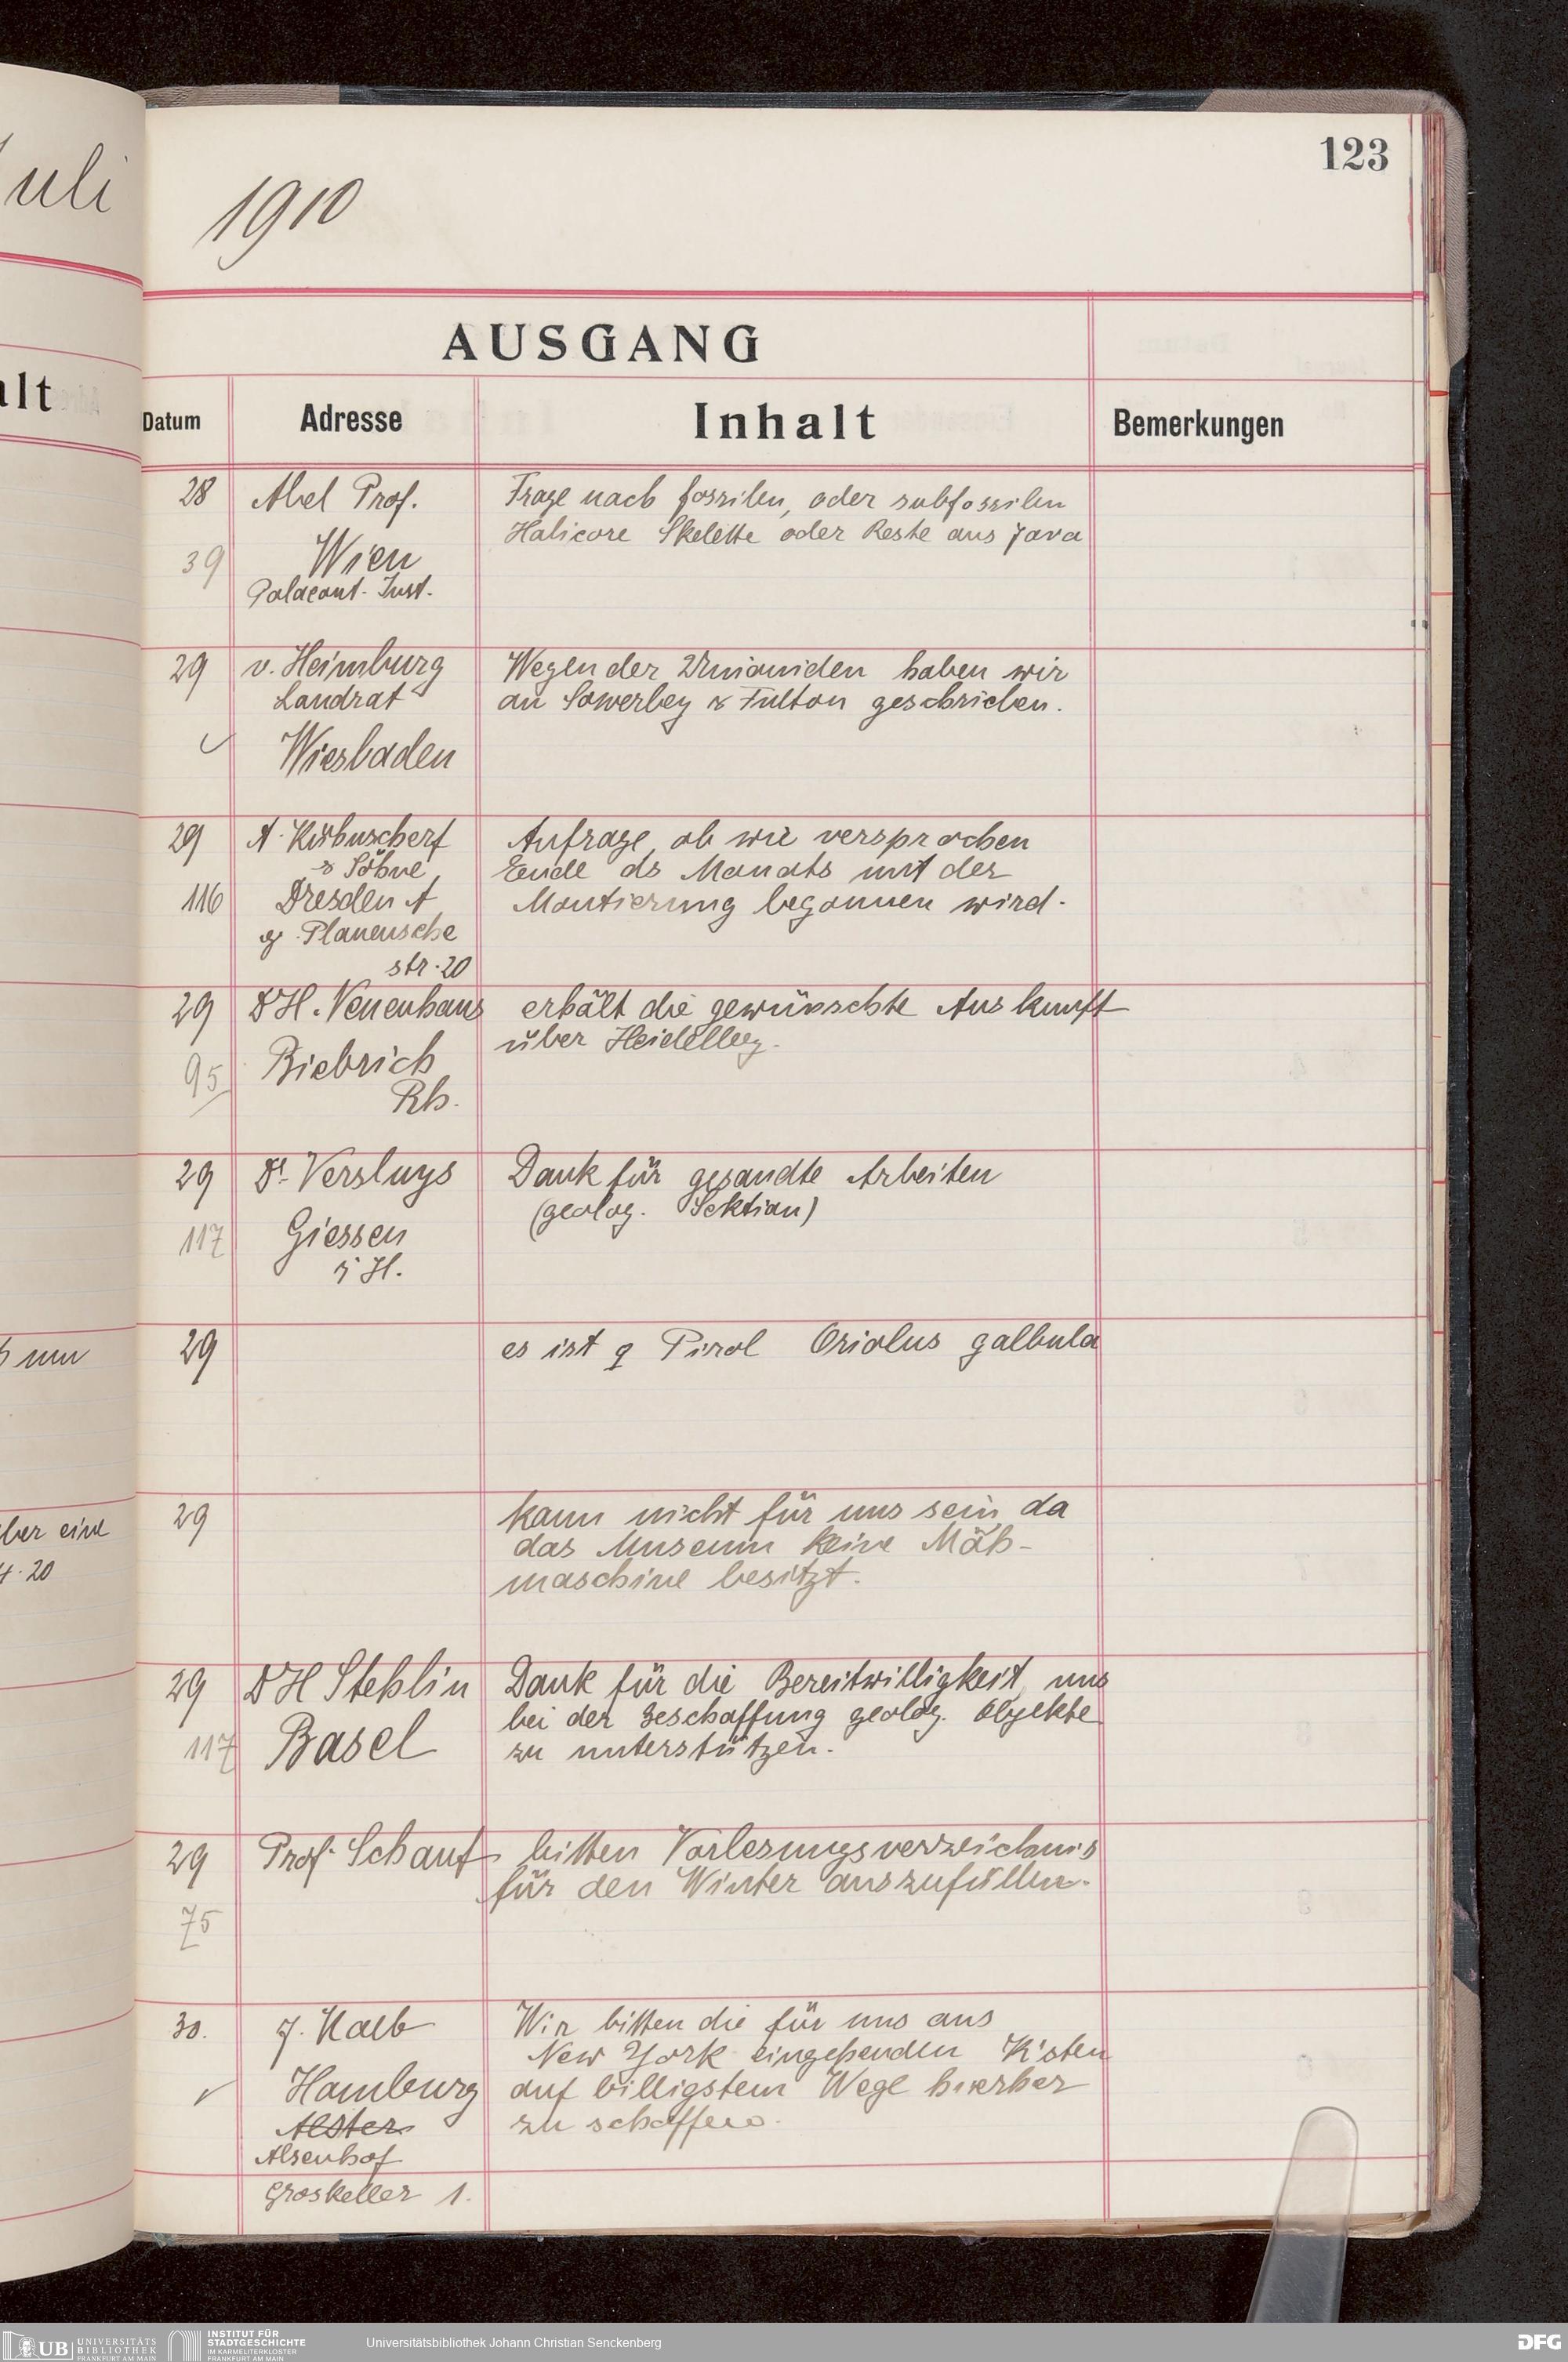 uli
alt
um
ber eine
20
123
1910
AUSGANG
Datum Adresse Inhalt Bemerkungen
28 Abel Prof. Frage nach fossilen, oder subfossilen
Halicore Skelette oder Reste aus Java
39 Wien
Palaeont. Inst.
29 v. Heimburg Wegen der Unioniden haben wir
Landrat an Sowerbey & Fulton geschrieben.
Wiesbaden
29 A. Anfrage, ob wie versprochen
& Söhne Ende ds Monats mit der
116 Dresden A Montierung begonnen wird.
Planensche
str. 20
29 Dr H. Neuenhaus erhält die gewünschte Auskunft
über Heidelberg.
95 Biebrich
Rh.
29 Dr. Versluys Dank für gesandte Arbeiten
(geolog. Sektion)
117 Giessen
i H.
29 es ist ♀ Pirol Oriolus galbula
29 kann nicht für uns sein, da
das Museum keine Mäh-
maschine besitzt.
29 Dr H Stehlin Dank für die Bereitwilligkeit, uns
bei der Beschaffung geolog. Objekte
117 Basel zu unterstützen.
29 Prof. Schauf bitten Vorlesungsverzeichnis
für den Winter auszufüllen.
75
30. J. Kalb Wir bitten die für uns aus
New York eingehenden Kisten
Hamburg auf billigstem Wege hierher
Alster zu schaffen.
Alsenhof
Groskeller 1.
UB UNIVERSITÄTS
BIBLIOTHEK
FRANKFURT AM MAIN
INSTITUT FÜR
STADTGESCHICHTE
IM KARMELITERKLOSTER
FRANKFURT AM MAIN
Universitätsbibliothek Johann Christian Senckenberg
DFG